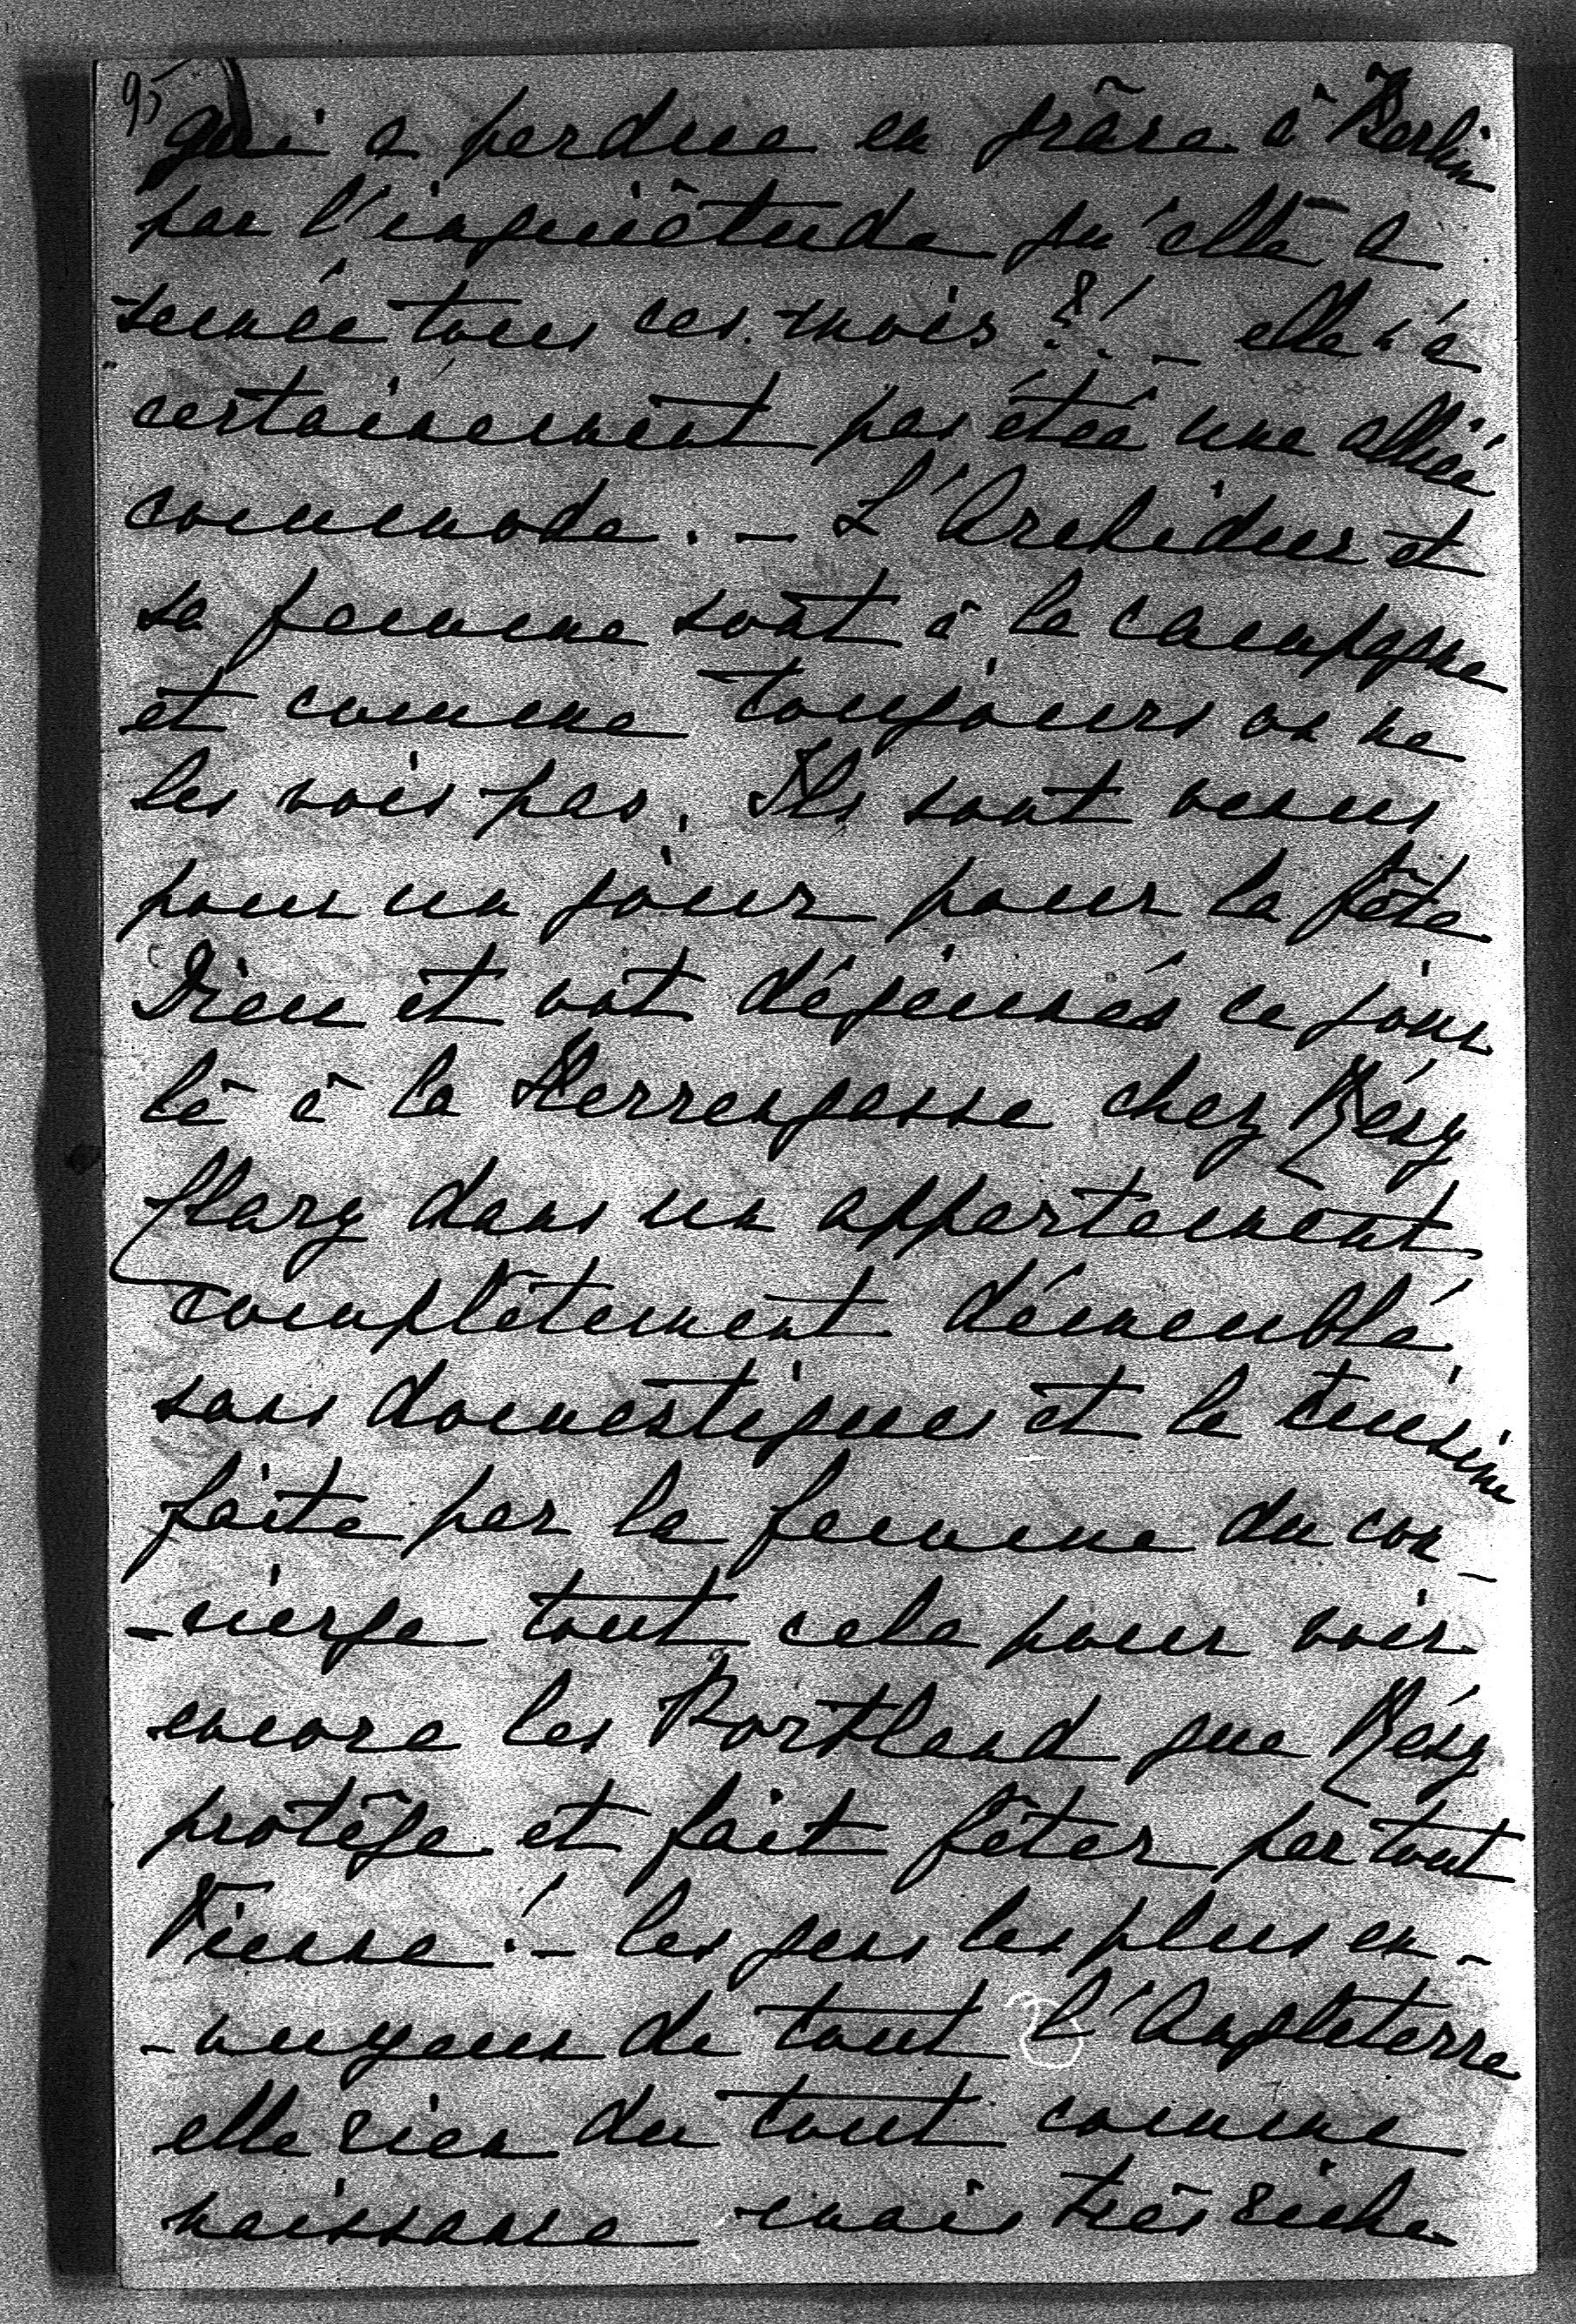 95
qui a perdue en grâce à Berlin
par l'inquiétude qu'elle a
semée tous ces mois?! _ elle n'a
certainement pas étée une alliée
commode. _ L'Archiduc et
sa femme sont à la campagne
et comme toujours on ne
les vois pas. Ils sont venus
pour un jour pour la fête
Dieu et ont déjeunés ce jour
là à la Herrengasse chez Résy
Clary dans un appartement
complètement démeublé
sans domestiques et la cuisine
faite par la femme du con-
-cierge tout cela pour voir
encore les Portland que Résy
protège et fait fêter par tout
Vienne! _ les gens les plus en-
-nuyeux de tout l'Angleterre
elle rien du tout comme
naissance mais très riche